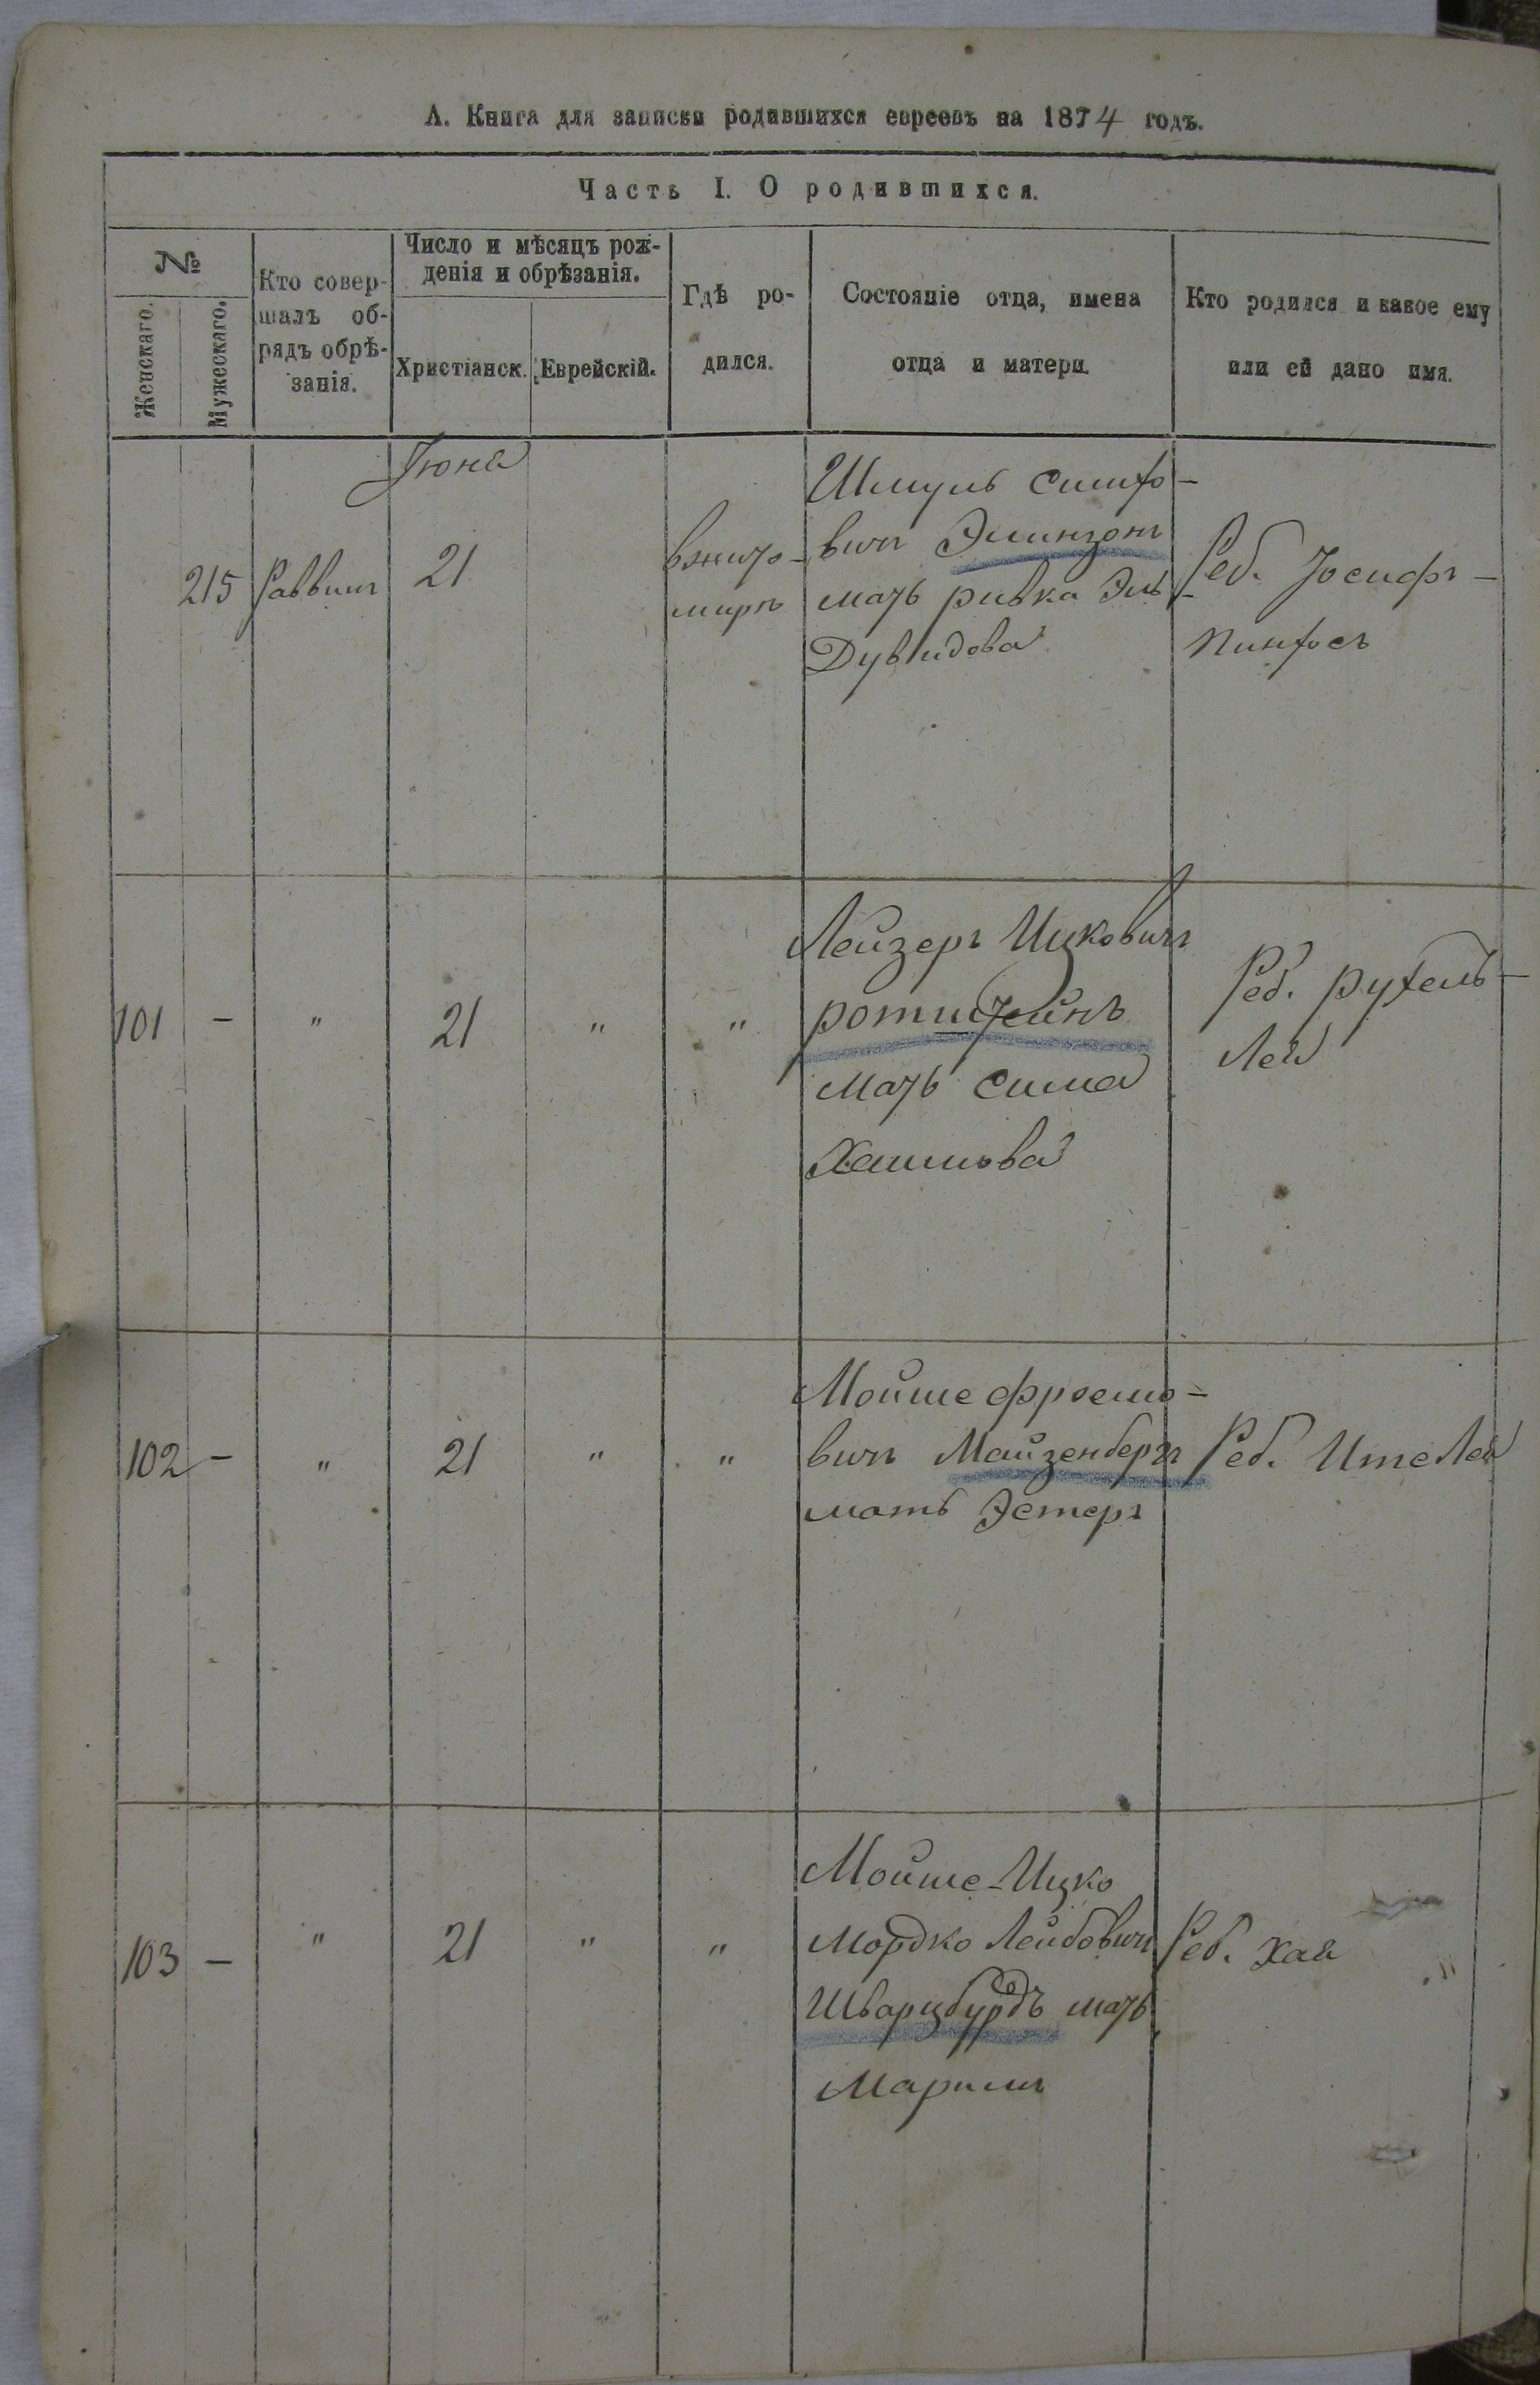 А. Книга для записки родившихся евреевъ на 1874 годъ.
Часть I. О родившихся.
№
Женскаго.
Мужескаго.
Кто совер-
шалъ об-
рядъ обрѣ-
занія.
Число и мѣсяцъ рож-
денія и обрѣзанія.
Христіанск.
Еврейскій.
Гдѣ ро-
дился.
Состояніе отца, имена
отца и матери.
Кто родился и какое ему
или ей дано имя.
Іюня
215
Раввинъ
21
вжито-
миръ
Шмуль
вичъ
мать ривка Эль-
Дувидова
Реб. Іосифъ-
Пинхосъ
101 - " 21 " "
Лейзеръ Ицковичъ
ротштейнъ
мать сима
Хаимова
Реб. рухель-
Лея
102 - " 21 " "
Мойше фроемо-
вичъ Майзенбергъ
мать Эстеръ
Реб. Ите Лея
103 - " 21 " "
Мойше-Ицко
мордко Лейбовичъ
Шварцбурдъ мать
Маримъ
Реб. Хая